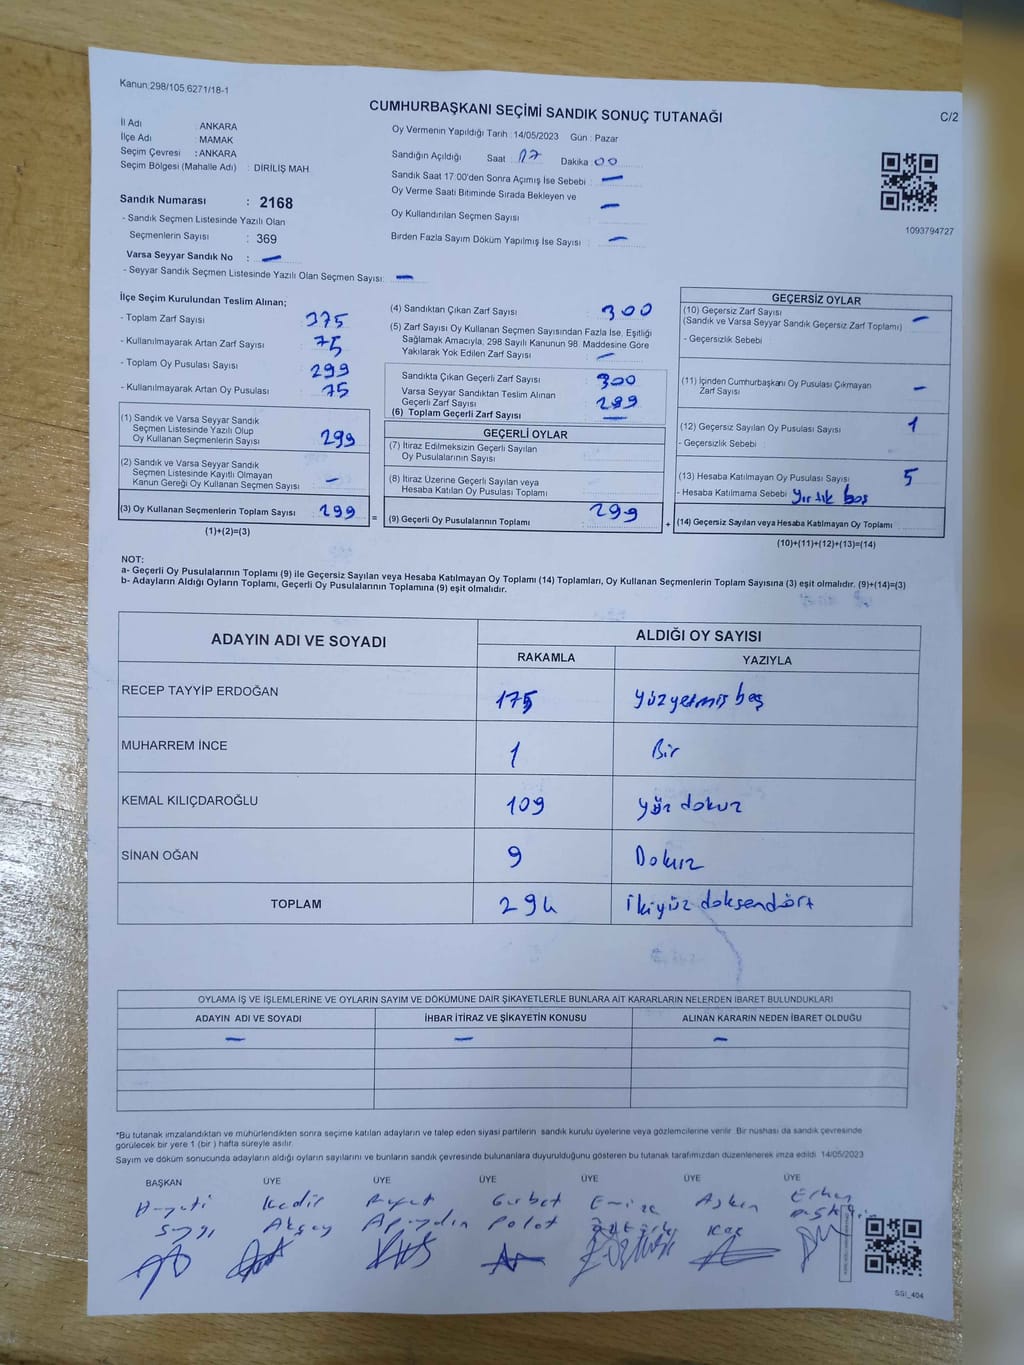 Kanun:298/105,6271/18-1
CUMHURBAŞKANI SEÇİMİ SANDIK SONUÇ TUTANAĞI
C/2
İl Adı : ANKARA
İlçe Adı : MAMAK
Seçim Çevresi : ANKARA
Seçim Bölgesi (Mahalle Adı) : DİRİLİŞ MAH.
Sandık Numarası : 2168
- Sandık Seçmen Listesinde Yazılı Olan
Seçmenlerin Sayısı : 369
Varsa Seyyar Sandık No : —
- Seyyar Sandık Seçmen Listesinde Yazılı Olan Seçmen Sayısı: —
Oy Vermenin Yapıldığı Tarih : 14/05/2023 Gün : Pazar
Sandığın Açıldığı Saat : 17 Dakika : 00
Sandık Saat 17:00'den Sonra Açımış İse Sebebi : —
Oy Verme Saati Bitiminde Sırada Bekleyen ve
Oy Kullandırılan Seçmen Sayısı : —
Birden Fazla Sayım Döküm Yapılmış İse Sayısı : —
1093794727
İlçe Seçim Kurulundan Teslim Alınan;
- Toplam Zarf Sayısı : 375
- Kullanılmayarak Artan Zarf Sayısı : 75
- Toplam Oy Pusulası Sayısı : 299
- Kullanılmayarak Artan Oy Pusulası : 75
(1) Sandık ve Varsa Seyyar Sandık
Seçmen Listesinde Yazılı Olup
Oy Kullanan Seçmenlerin Sayısı : 299
(2) Sandık ve Varsa Seyyar Sandık
Seçmen Listesinde Kayıtlı Olmayan
Kanun Gereği Oy Kullanan Seçmen Sayısı : —
(3) Oy Kullanan Seçmenlerin Toplam Sayısı : 299 =
(1)+(2)=(3)
(4) Sandıktan Çıkan Zarf Sayısı : 300
(5) Zarf Sayısı Oy Kullanan Seçmen Sayısından Fazla İse, Eşitliği
Sağlamak Amacıyla; 298 Sayılı Kanunun 98. Maddesine Göre
Yakılarak Yok Edilen Zarf Sayısı : —
Sandıkta Çıkan Geçerli Zarf Sayısı : 300
Varsa Seyyar Sandıktan Teslim Alınan
Geçerli Zarf Sayısı : 299
(6) Toplam Geçerli Zarf Sayısı : —
GEÇERLİ OYLAR
(7) İtiraz Edilmeksizin Geçerli Sayılan
Oy Pusulalarının Sayısı :
(8) İtiraz Üzerine Geçerli Sayılan veya
Hesaba Katılan Oy Pusulası Toplamı :
(9) Geçerli Oy Pusulalarının Toplamı : 299 +
GEÇERSİZ OYLAR
(10) Geçersiz Zarf Sayısı : —
(Sandık ve Varsa Seyyar Sandık Geçersiz Zarf Toplamı)
- Geçersizlik Sebebi :
(11) İçinden Cumhurbaşkanı Oy Pusulası Çıkmayan
Zarf Sayısı : —
(12) Geçersiz Sayılan Oy Pusulası Sayısı : 1
- Geçersizlik Sebebi :
(13) Hesaba Katılmayan Oy Pusulası Sayısı : 5
- Hesaba Katılmama Sebebi : Yırtık boş
(14) Geçersiz Sayılan veya Hesaba Katılmayan Oy Toplamı :
(10)+(11)+(12)+(13)=(14)
NOT:
a- Geçerli Oy Pusulalarının Toplamı (9) ile Geçersiz Sayılan veya Hesaba Katılmayan Oy Toplamı (14) Toplamları, Oy Kullanan Seçmenlerin Toplam Sayısına (3) eşit olmalıdır. (9)+(14)=(3)
b- Adayların Aldığı Oyların Toplamı, Geçerli Oy Pusulalarının Toplamına (9) eşit olmalıdır.
ADAYIN ADI VE SOYADI
ALDIĞI OY SAYISI
RAKAMLA YAZIYLA
RECEP TAYYİP ERDOĞAN 175 yüzyetmiş beş
MUHARREM İNCE 1 Bir
KEMAL KILIÇDAROĞLU 109 yüz dokuz
SİNAN OĞAN 9 Dokuz
TOPLAM 294 ikiyüz doksandört
OYLAMA İŞ VE İŞLEMLERİNE VE OYLARIN SAYIM VE DÖKÜMÜNE DAİR ŞİKAYETLERLE BUNLARA AİT KARARLARIN NELERDEN İBARET BULUNDUKLARI
ADAYIN ADI VE SOYADI İHBAR İTİRAZ VE ŞİKAYETİN KONUSU ALINAN KARARIN NEDEN İBARET OLDUĞU
— — —
*Bu tutanak imzalandıktan ve mühürlendikten sonra seçime katılan adayların ve talep eden siyasi partilerin sandık kurulu üyelerine veya gözlemcilerine verilir. Bir nüshası da sandık çevresinde
görülecek bir yere 1 (bir) hafta süreyle asılır.
Sayım ve döküm sonucunda adayların aldığı oyların sayılarını ve bunların sandık çevresinde bulunanlara duyurulduğunu gösteren bu tutanak tarafımızdan düzenlenerek imza edildi. 14/05/2023
BAŞKAN ÜYE ÜYE ÜYE ÜYE ÜYE ÜYE
Kadir Gurbet Emine Aşkın Erkan
Akçay Apaydın Polat Koç
SSI_404